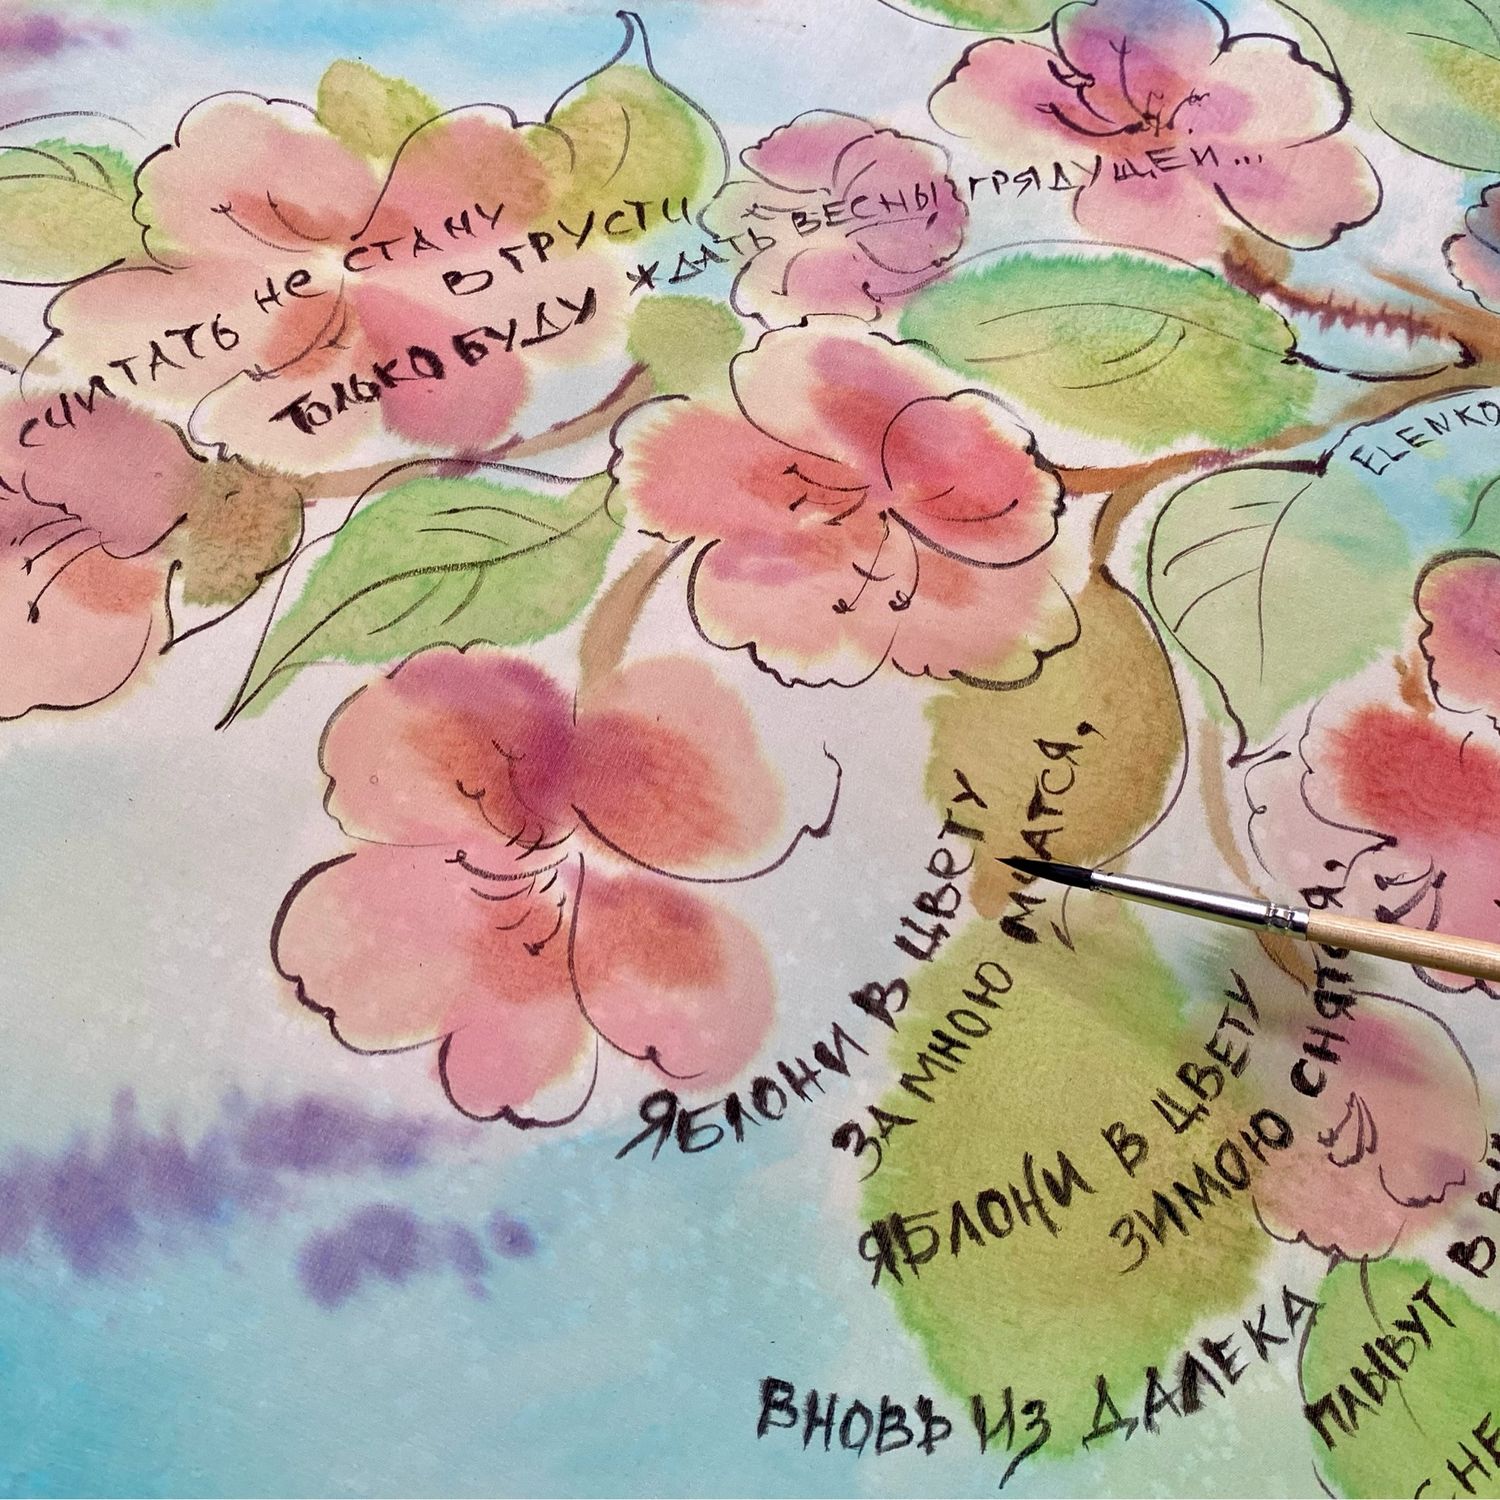 СЧИТАТЬ НЕ СТАНУ
В ГРУСТИ
ТОЛЬКО БУДУ
ЖДАТЬ ВЕСНЫ ГРЯДУЩЕЙ...
ELENKO
ЯБЛОНИ В ЦВЕТУ
ЗА МНОЮ МЧАТСЯ,
ЯБЛОНИ В ЦВЕТУ
ЗИМОЮ СНЯТСЯ,
ВНОВЬ ИЗ ДАЛЕКА
ПЛЫВУТ В
СНЕ